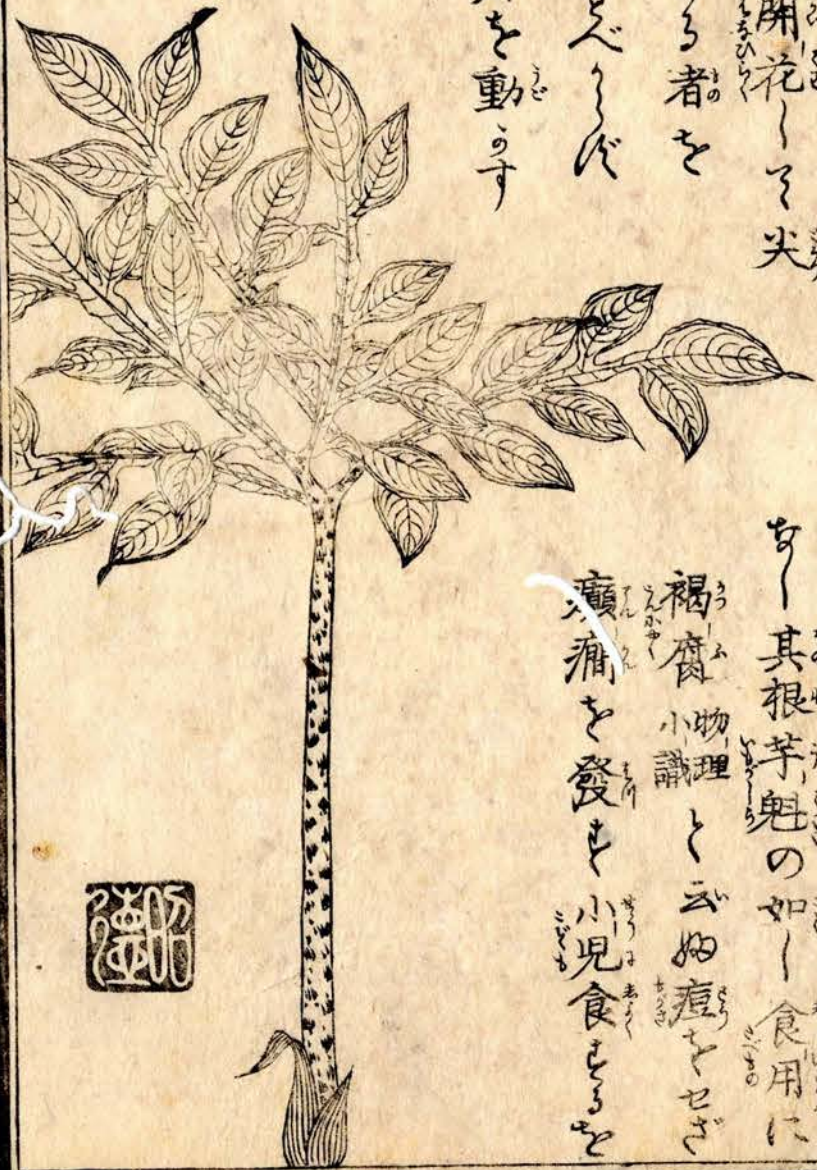 開花して尖
る者を
べからず
を動かす
なし其根芋魁の如し食用に
褐腐 物理小識 と云ふ痘をせざ
癲癇を發す小児食するを
昭德